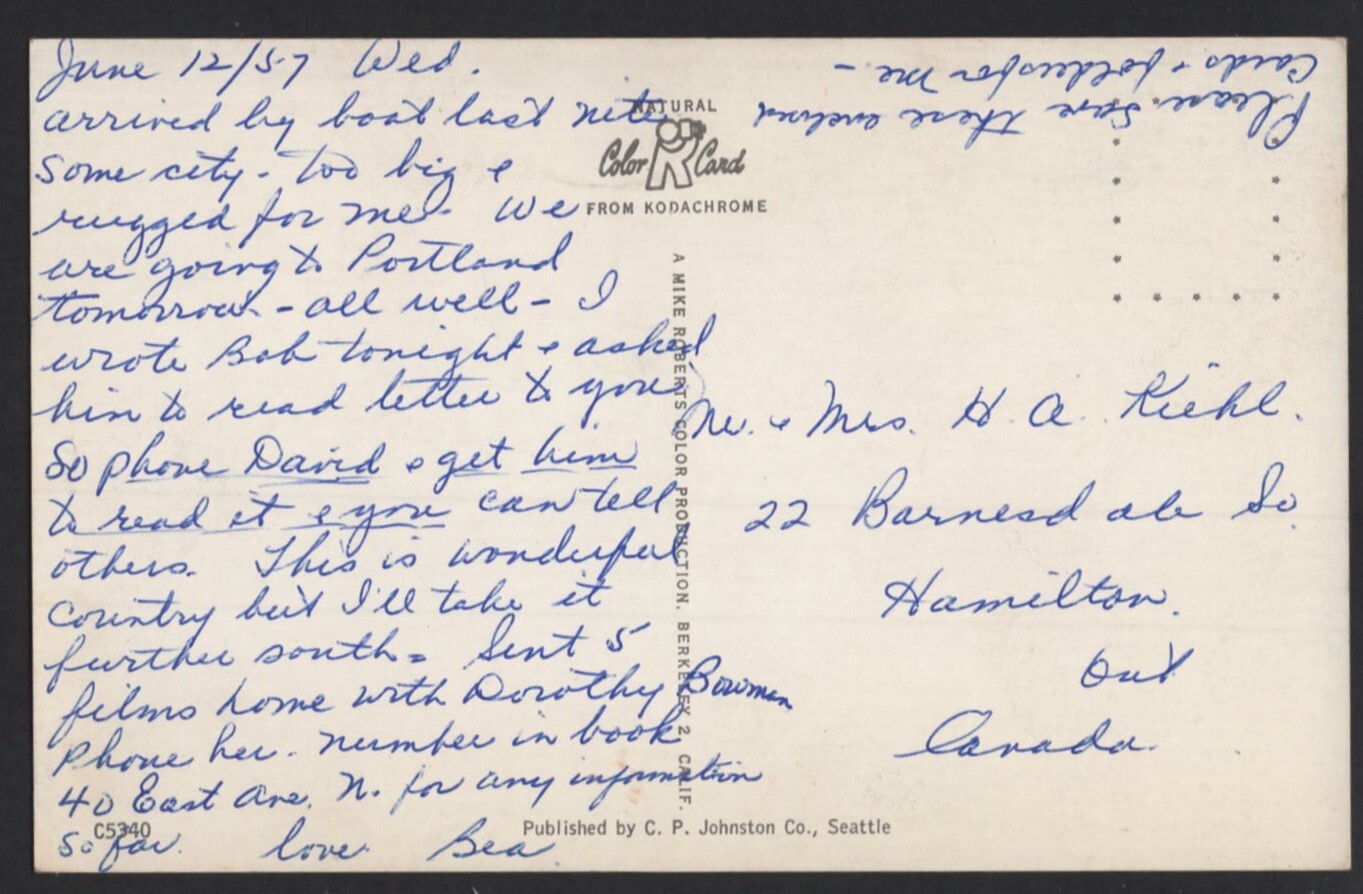 June 12/57 Wed.
arrived by boat last nite
some city - too big &
rugged for me - We
are going to Portland
tomorrow - all well - I
wrote Bob tonight & asked
him to read letter to you
So phone David & get him
to read it & you can tell
others. This is wonderful
country but I'll take it
further south - Sent 5
films home with Dorothy Bowman
Phone her. number in book
40 East Ave. N. for any information
so far. love Bea
C5340
Please save these enclosed
Cards & folders for me -
NATURAL
Color R Card
FROM KODACHROME
A MIKE ROBERTS COLOR PRODUCTION. BERKELEY 2. CALIF.
Mr. & Mrs. H. A. Kiehl.
22 Barnesdale So
Hamilton.
Ont
Canada.
Published by C. P. Johnston Co., Seattle